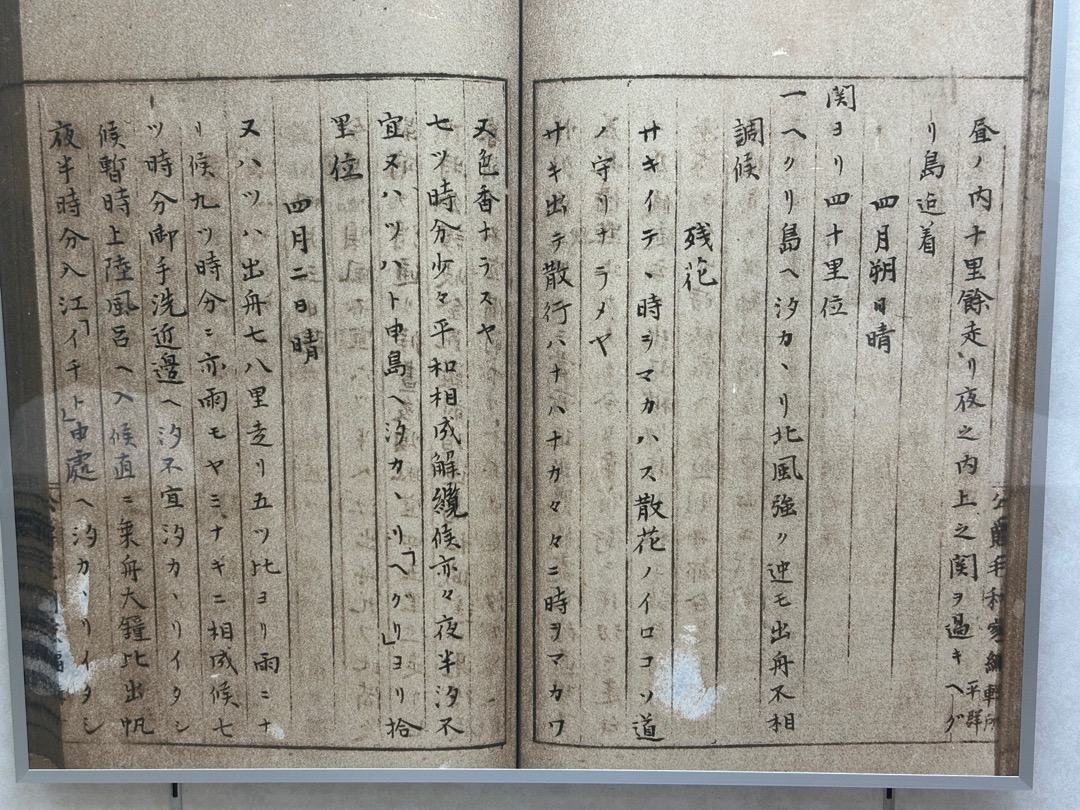 昼ノ内十里餘走リ夜之内上之関ヲ過キヘグ
リ島迫着
四月朔日晴
関ヨリ四十里位
一ヘクリ島ヘ汐カヽリ北風強ク迚モ出舟不相
調候
残花
サキイテヽ時ヲマカハス散花ノイロコソ道
ノ守リナラメヤ
サキ出テ散行ハナハナカ々々ニ時ヲマカワ
又色香ナラスヤ
七ツ時分少々平和相成解纜候亦々夜半汐不
宜又ハツハト申島ヘ汐カヽリ「ヘグリ」ヨリ拾
里位
四月二日晴
又ハツハ出舟七八里走リ五ツ比ヨリ雨ニナ
リ候九ツ時分ニ亦雨モヤミナギニ相成候七
ツ時分御手洗近邉ヘ汐不宜汐カヽリイタシ
候暫時上陸風呂ヘ入候直ニ乗舟大鐘比出帆
夜半時分入江「イチト」申處ヘ汐カヽリイタシ
公爵毛利家編輯所
平群